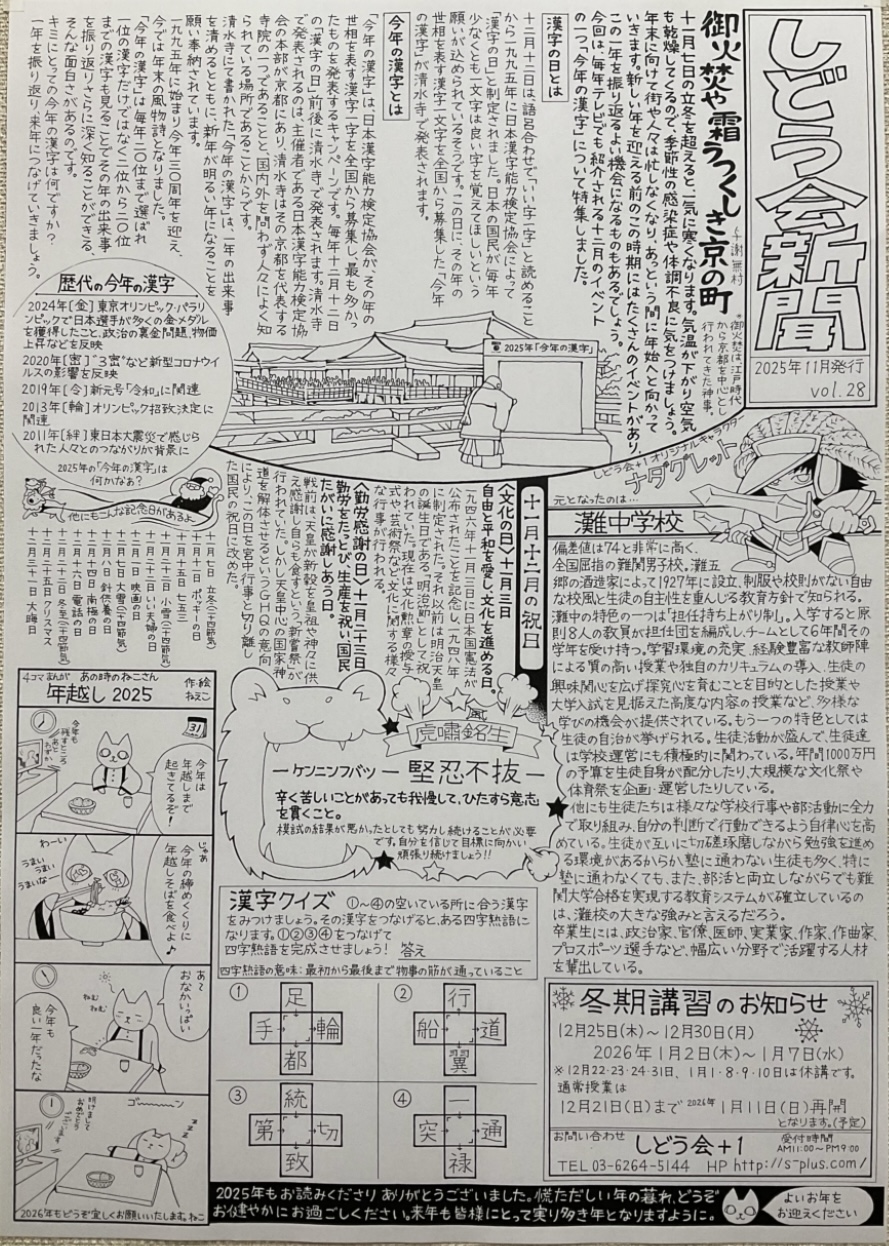 しどう会新聞
2025年11月発行
vol.28
御火焚や霜うつくしき京の町
(与謝蕪村)
*御火焚は、江戸時代
から京都を中心とし
行われてきた神事。
十一月七日の立冬を超えると一気に寒くなります。気温が下がり空気
も乾燥してくるので、季節性の感染症や体調不良に気をつけましょう。
年末に向けて街や人々は忙しなくなり、あっという間に年始へと向かって
いきます。新しい年を迎える前のこの時期にはたくさんのイベントがあり、
この一年を振り返るよい機会になるものもあるでしょう。
今回は、毎年テレビでも紹介される十二月のイベント
の一つ、「今年の漢字」について特集しました。
漢字の日とは
十二月十二日は語呂合わせで「いい字一字」と読めること
から一九九五年に日本漢字能力検定協会によって
「漢字の日」と制定されました。日本の国民が毎年
少なくとも一文字は良い字を覚えてほしいという
願いが込められているそうです。この日に、その年の
世相を表す漢字一文字を全国から募集した「今年
の漢字」が清水寺で発表されます。
今年の漢字とは
「今年の漢字」は、日本漢字能力検定協会が、その年の
世相を表す漢字一字を全国から募集し、最も多かっ
たものを発表するキャンペーンです。毎年十二月十二日
の「漢字の日」前後に清水寺で発表されます。清水寺
で発表されるのは、主催者である日本漢字能力検定協
会の本部が京都にあり、清水寺はその京都を代表する
寺院の一つであることと、国内外を問わず人々によく知
られている場所であることからです。
清水寺にて書かれた「今年の漢字」は、一年の出来事
を清めるとともに、新年が明るい年になることを
願い奉納されています。
一九九五年に始まり今年三〇周年を迎え、
今では年末の風物詩となりました。
「今年の漢字」は毎年二〇位まで選ばれ
一位の漢字だけではなく二位から二〇位
までの漢字も見ることでその年の出来事
を振り返りさらに深く知ることができる、
そんな面白さがあるのです。
キミにとっての今年の漢字は何ですか?
一年を振り返り、来年につなげていきましょう。
2025年「今年の漢字」
歴代の今年の漢字
2024年[金]東京オリンピック・パラリ
ンピックで日本選手が多くの金メダル
を獲得したこと、政治の裏金問題、物価
上昇などを反映
2020年[密]"3密"など新型コロナウイ
ルスの影響を反映
2019年[令]新元号「令和」に関連
2013年[輪]オリンピック招致決定に
関連
2011年[絆]東日本大震災で感じら
れた人々とのつながりが背景に
2025年の「今年の漢字」は
何かなぁ?
他にもこんな記念日があるよ
十一月七日 立冬(二十四節気)
十一月十一日 ポッキーの日
十一月十五日 七五三
十一月二十二日 小雪(二十四節気)
十一月二十二日 いい夫婦の日
十二月一日 映画の日
十二月七日 大雪(二十四節気)
十二月八日 針供養の日
十二月十四日 南極の日
十二月十六日 電話の日
十二月二十二日 冬至(二十四節気)
十二月二十五日 クリスマス
十二月三十一日 大晦日
十一月、十二月の祝日
〈文化の日〉十一月三日
自由と平和を愛し、文化を進める日。
一九四六年十一月三日に日本国憲法が
公布されたことを記念し、一九四八年
に制定された。それ以前は明治天皇
の誕生日である「明治節」として祝
われていた。現在は文化勲章の授与
式や芸術祭など文化に関する様々
な行事が行われる。
〈勤労感謝の日〉十一月二十三日
勤労をたっとび、生産を祝い、国民
たがいに感謝しあう日。
戦前は天皇が新穀を皇祖や神々に供
え感謝し自らも食すという「新嘗祭」が
行われていた。しかし天皇中心の国家神
道を解体させるというGHQの意向
により、この日を宮中行事と切り離し
た国民の祝日に改めた。
しどう会+1オリジナルキャラクター
ナダグレット
元となったのは…
灘中学校
偏差値は74と非常に高く、
全国屈指の難関男子校。灘五
郷の酒造家によって1927年に設立、制服や校則がない自由
な校風と生徒の自主性を重んじる教育方針で知られる。
灘中の特色の一つは"担任持ち上がり制"。入学すると原
則8人の教員が担任団を編成し、チームとして6年間その
学年を受け持つ。学習環境の充実、経験豊富な教師陣
による質の高い授業や独自のカリキュラムの導入、生徒の
興味関心を広げ探究心を育むことを目的とした授業や
大学入試を見据えた高度な内容の授業など、多様な
学びの機会が提供されている。もう一つの特色としては
生徒の自治が挙げられる。生徒活動が盛んで、生徒達
は学校運営にも積極的に関わっている。年間1000万円
の予算を生徒自身が配分したり、大規模な文化祭や
体育祭を企画・運営したりしている。
他にも生徒たちは様々な学校行事や部活動に全力
で取り組み、自分の判断で行動できるよう自律心を高
めている。生徒が互いに切磋琢磨しながら勉強を進め
る環境があるからか塾に通わない生徒も多く、特に
塾に通わなくても、また、部活と両立しながらでも難
関大学合格を実現する教育システムが確立しているの
は、灘校の大きな強みと言えるだろう。
卒業生には、政治家、官僚、医師、実業家、作家、作曲家、
プロスポーツ選手など、幅広い分野で活躍する人材
を輩出している。
虎嘯銘生
―ケンニンフバツ― 堅忍不抜―
辛く苦しいことがあっても我慢して、ひたすら意志
を貫くこと。
模試の結果が悪かったとしても努力し続けることが必要
です。自分を信じて目標に向かい
頑張り続けましょう!!
4コマまんが あの時のねこさん
年越し2025
作・絵
ねえこ
31
今年も
残すところ
あと
わずか
今年は
年越しまで
起きてるぞ!
じゃあ
今年の締めくくりに
年越しそばを食べよ♪
わーい
うまい
うまい
うまいな~
あ~
おなかいっぱい
ねむ
ねむ
今年も
良い一年だったな
ゴ~~~ン
明けまして
おめでとう
ございます
zzz
2026年もどうぞ宜しくお願いいたします。ねこ
漢字クイズ
①~④の空いている所に合う漢字
をみつけましょう。その漢字をつなげると、ある四字熟語に
なります。①②③④をつなげて
四字熟語を完成させましょう! 答え
四字熟語の意味:最初から最後まで物事の筋が通っていること
①
足
手 輪
都
②
行
船 道
翼
③
統
第 切
致
④
一
突 通
禄
冬期講習のお知らせ
12月25日(木)~12月30日(月)
2026年1月2日(木)~1月7日(水)
※12月22・23・24・31日、1月1・8・9・10日は休講です。
通常授業は
12月21日(日)まで 2026年1月11日(日)再開
となります。(予定)
お問い合わせ しどう会+1 受付時間
AM11:00~PM9:00
TEL 03-6264-5144 HP http://s-plus.com/
2025年もお読みくださり ありがとうございました。慌ただしい年の暮れ、どうぞ
お健やかにお過ごしください。来年も皆様にとって実り多き年となりますように。
よいお年を
お迎えください